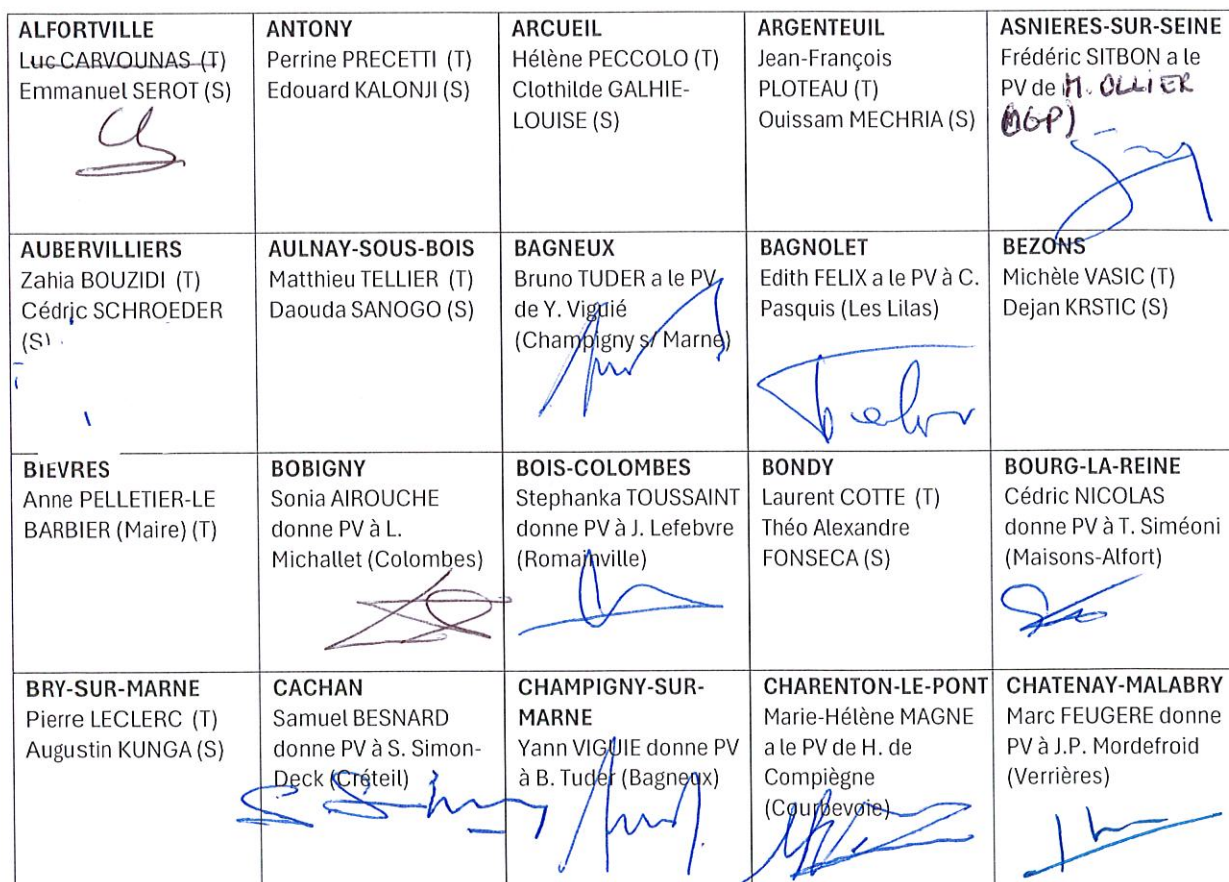 ALFORTVILLE
Luc CARVOUNAS (T)
Emmanuel SEROT (S)
ANTONY
Perrine PRECETTI (T)
Edouard KALONJI (S)
ARCUEIL
Hélène PECCOLO (T)
Clothilde GALHIE-
LOUISE (S)
ARGENTEUIL
Jean-François
PLOTEAU (T)
Ouissam MECHRIA (S)
ASNIERES-SUR-SEINE
Frédéric SITBON a le
PV de M. OLLIER
MGP)
AUBERVILLIERS
Zahia BOUZIDI (T)
Cédric SCHROEDER
(S)
AULNAY-SOUS-BOIS
Matthieu TELLIER (T)
Daouda SANOGO (S)
BAGNEUX
Bruno TUDER a le PV
de Y. Viguié
(Champigny s/ Marne)
BAGNOLET
Edith FELIX a le PV à C.
Pasquis (Les Lilas)
BEZONS
Michèle VASIC (T)
Dejan KRSTIC (S)
BIEVRES
Anne PELLETIER-LE
BARBIER (Maire) (T)
BOBIGNY
Sonia AIROUCHE
donne PV à L.
Michallet (Colombes)
BOIS-COLOMBES
Stephanka TOUSSAINT
donne PV à J. Lefebvre
(Romainville)
BONDY
Laurent COTTE (T)
Théo Alexandre
FONSECA (S)
BOURG-LA-REINE
Cédric NICOLAS
donne PV à T. Siméoni
(Maisons-Alfort)
BRY-SUR-MARNE
Pierre LECLERC (T)
Augustin KUNGA (S)
CACHAN
Samuel BESNARD
donne PV à S. Simon-
Deck (Créteil)
CHAMPIGNY-SUR-
MARNE
Yann VIGUIE donne PV
à B. Tuder (Bagneux)
CHARENTON-LE-PONT
Marie-Hélène MAGNE
a le PV de H. de
Compiègne
(Courbevoie)
CHATENAY-MALABRY
Marc FEUGERE donne
PV à J.P. Mordefroid
(Verrières)